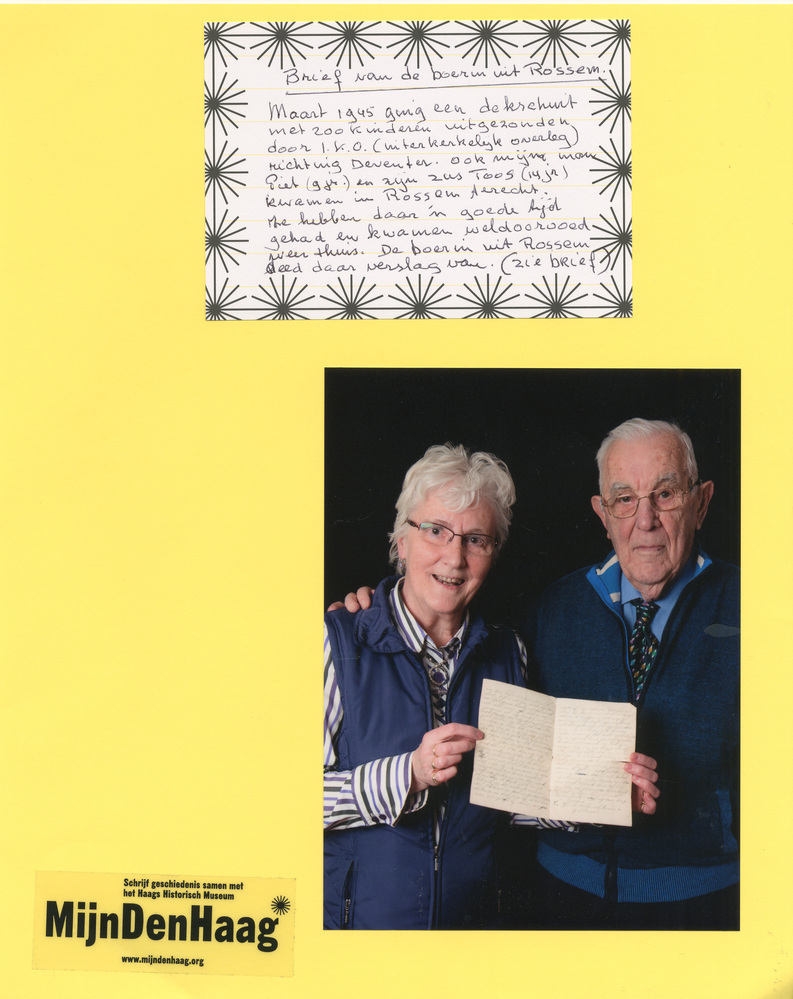 Brief van de boerin uit Rossem.
Maart 1945 ging een dekschuit
met 200 kinderen uitgezonden
door I.K.O. (interkerkelijk overleg)
richting Deventer. Ook mijn man
Piet (9 jr.) en zijn zus Toos (14 jr)
kwamen in Rossem terecht.
Ze hebben daar 'n goede tijd
gehad en kwamen weldoorvoed
weer thuis. De boerin uit Rossem
deed daar verslag van. (zie brief)
Schrijf geschiedenis samen met
het Haags Historisch Museum
MijnDenHaag
www.mijndenhaag.org